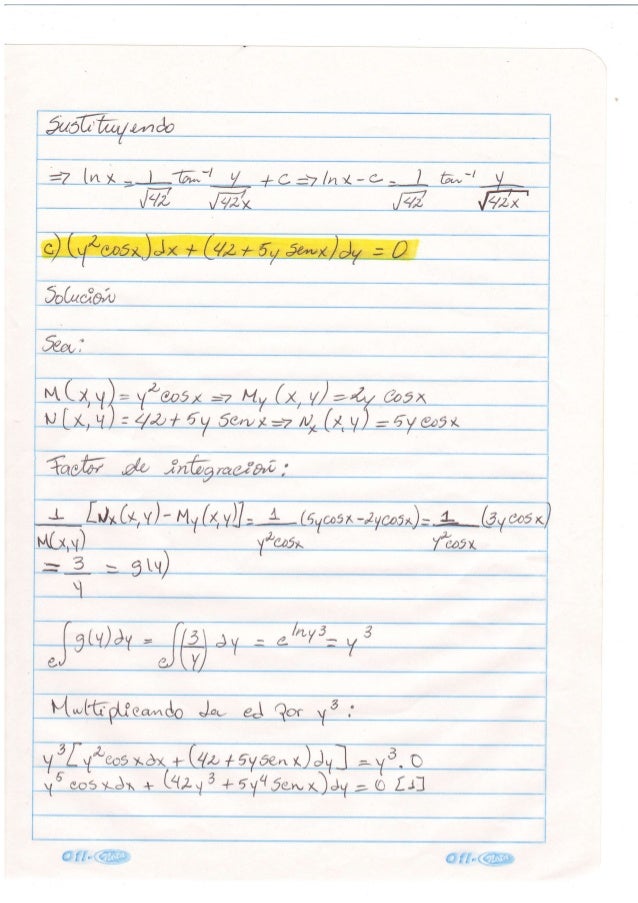 Sustituyendo
=> ln x = 1/√42 tan⁻¹ y/√42 x + C => ln x - c = 1/√42 tan⁻¹ y/√42 x
c) (y² cosx) dx + (42 + 5y senx) dy = 0
Solución
Sea:
M(x,y) = y² cosx => My (x, y) = 2y cosx
N(x, y) = 42 + 5y senx => Nx (x, y) = 5y cosx
Factor de integración:
1/M(x,y) [Nx(x,y) - My(x,y)] = 1/y²cosx (5ycosx - 2ycosx) = 1/y²cosx (3y cosx)
= 3/y = g(y)
e^∫g(y)dy = e^∫(3/y) dy = e^lny³ = y³
Multiplicando la ed por y³:
y³[y² cosxdx + (42 + 5ysenx)dy] = y³. 0
y⁵ cosxdx + (42y³ + 5y⁴ senx)dy = 0 [1]
Ofi-Nota Ofi-Nota